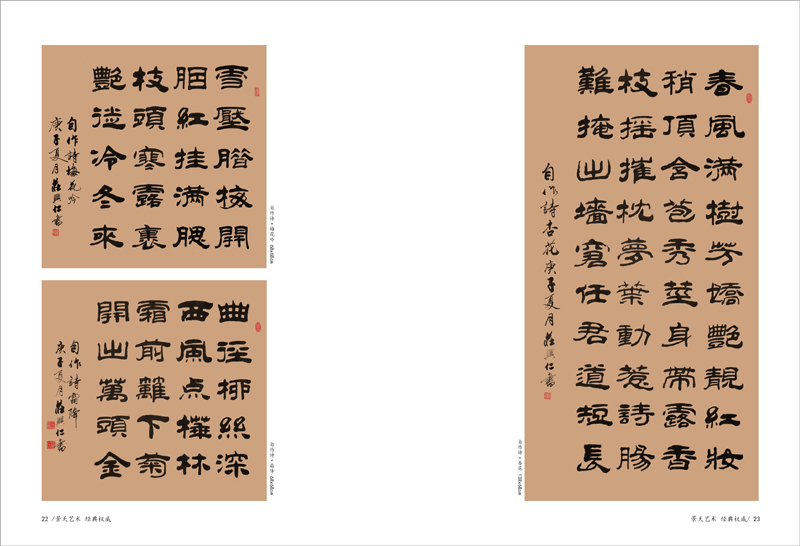 雪壓臘梅開
胭紅挂滿腮
枝頭寒露裹
艷從冷冬來
自作詩梅花吟
庚子夏月莊照仁書
自作诗·梅花吟 68x68cm
曲徑柳絲深
西風点樺林
霜前籬下菊
開出萬頭金
自作詩霜降
庚子夏月莊照仁書
自作诗·霜降 68x68cm
22 /景天艺术 经典权威
春風滿樹芳嬌艷靚紅妝
稍頂含苞秀莖身帶露香
枝摇摧枕夢葉動惹詩腸
難掩出墻窘任君道短長
自作詩杏花庚子夏月莊照仁書
自作诗·杏花 138x68cm
景天艺术 经典权威/ 23